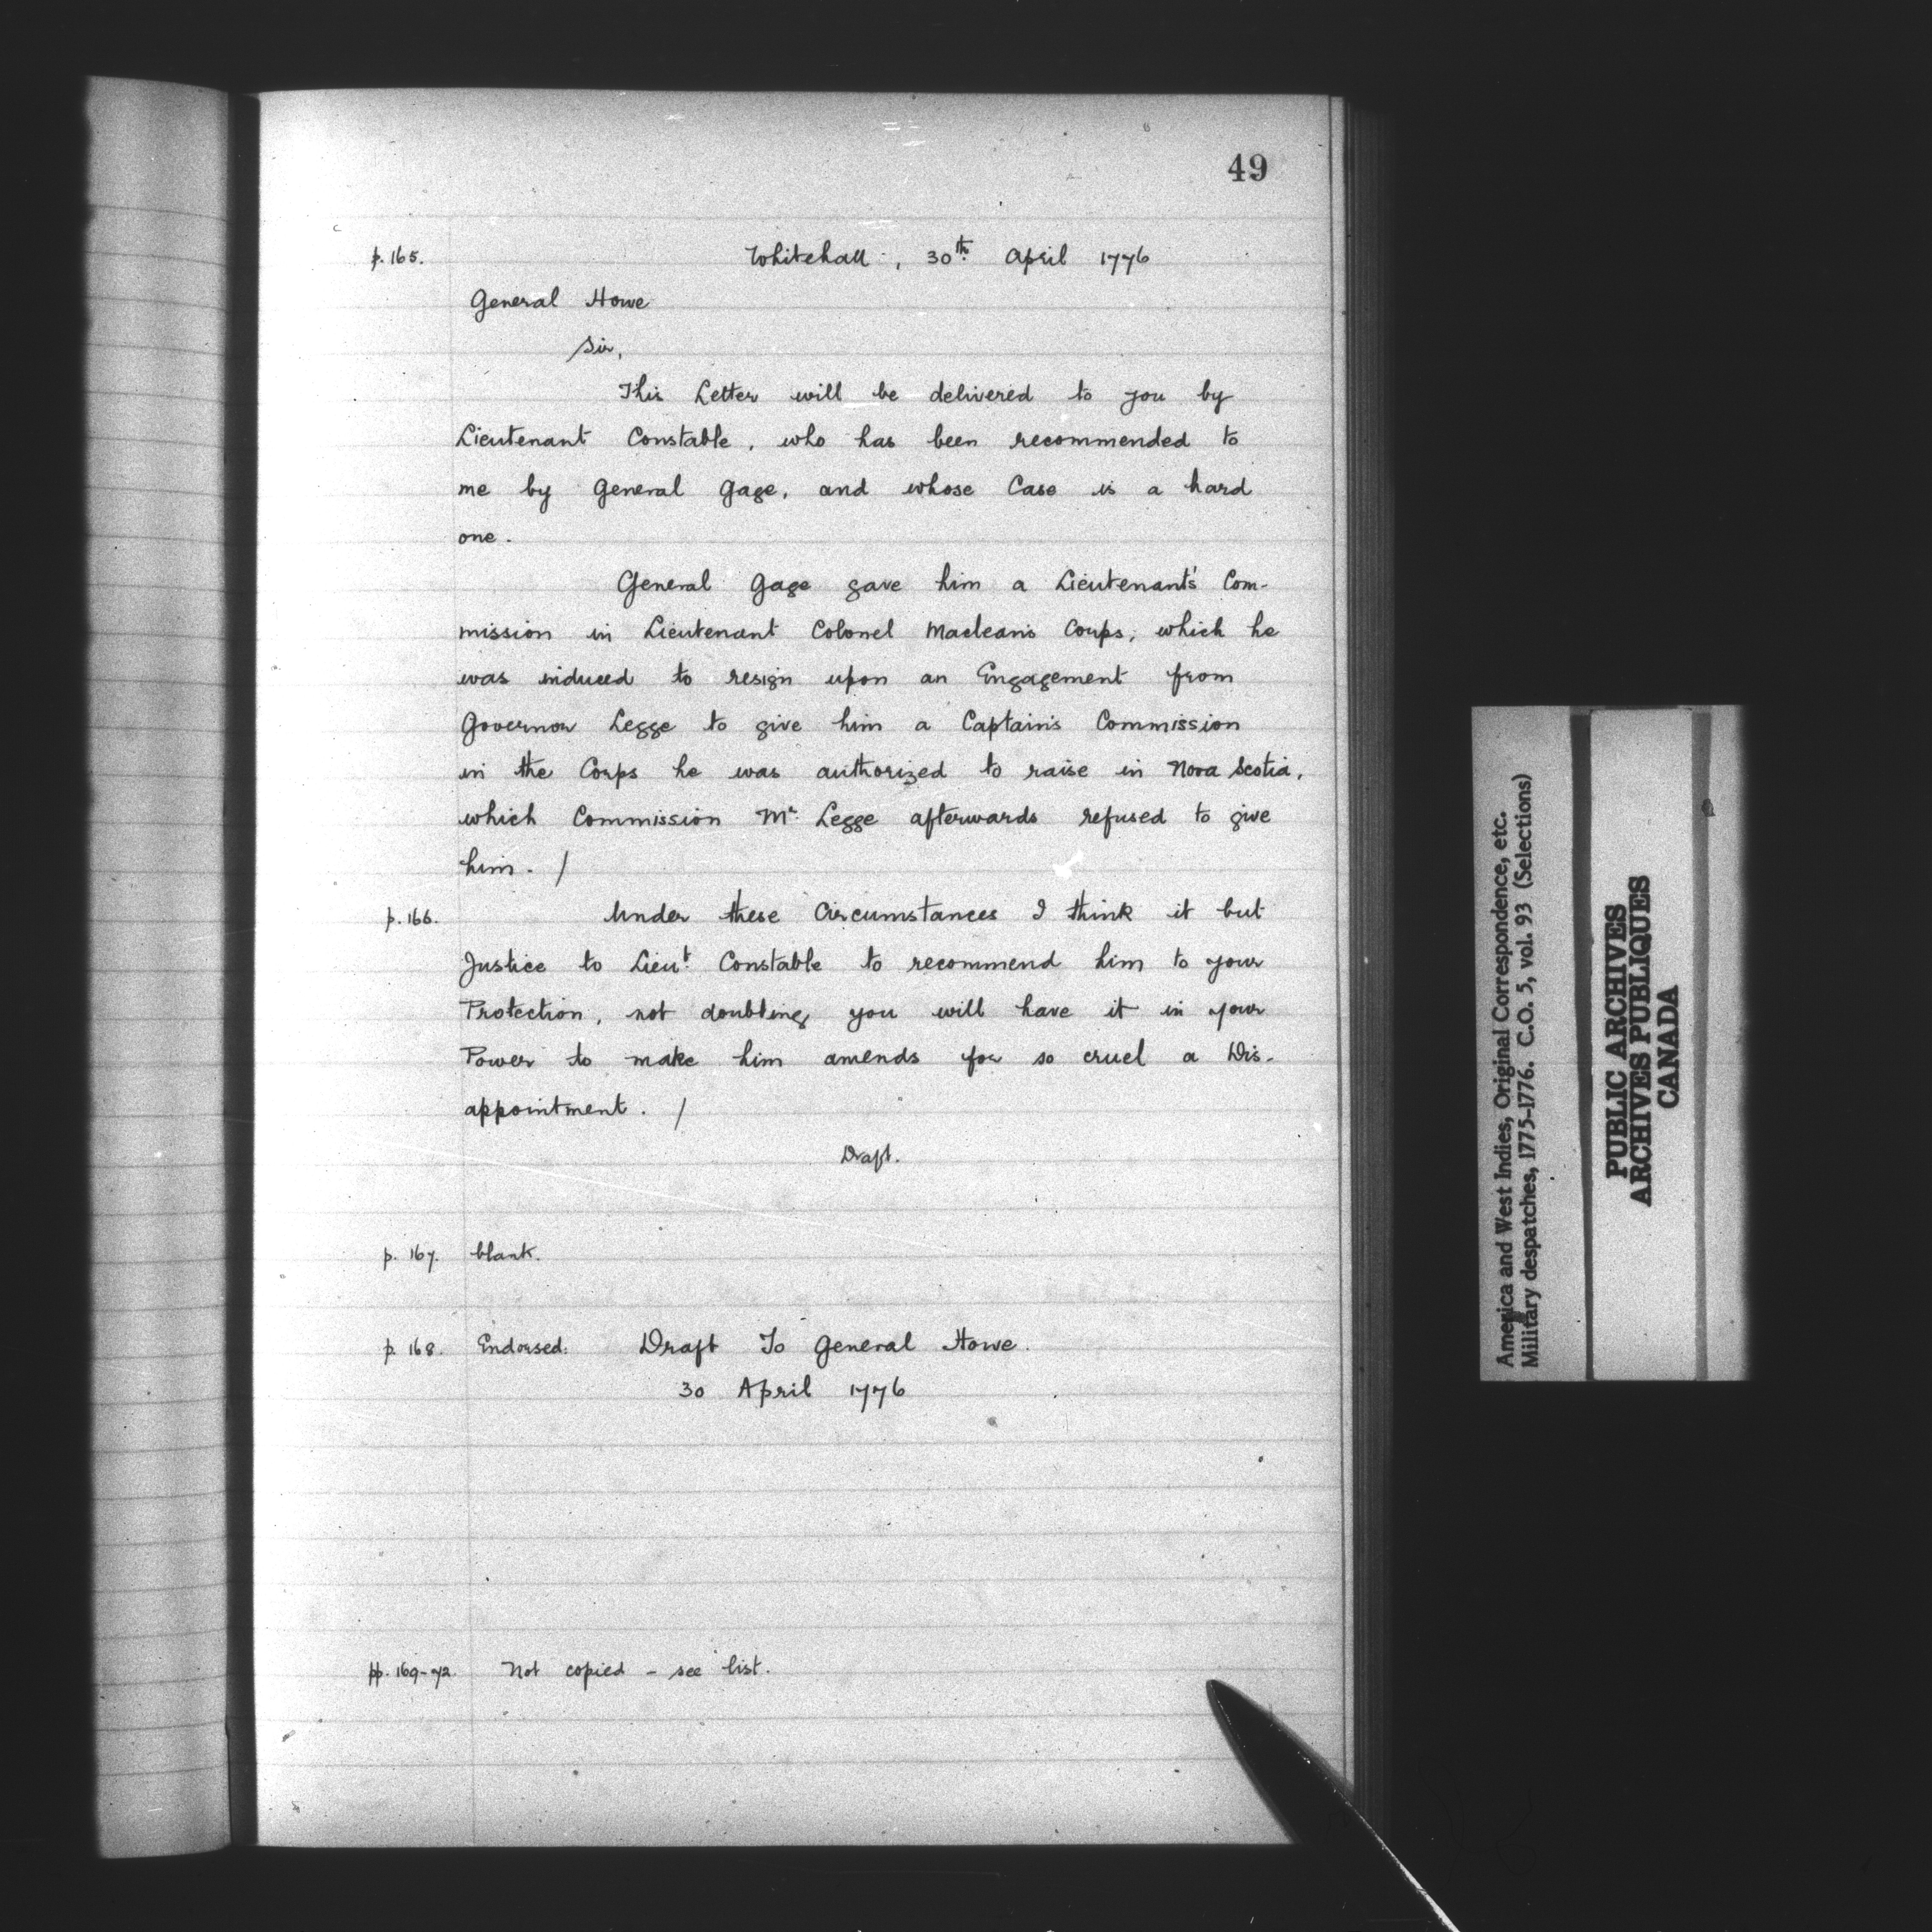 49
p. 165. Whitehall, 30th April 1776
General Howe
Sir,
This Letter will be delivered to you by
Lieutenant Constable, who has been recommended to
me by General Gage, and whose Case is a hard
one.
General Gage gave him a Lieutenant's Com-
mission in Lieutenant Colonel Maclean's Corps, which he
was induced to resign upon an Engagement from
Governor Legge to give him a Captain's Commission
in the Corps he was authorized to raise in Nova Scotia,
which Commission Mr. Legge afterwards refused to give
him. /
p. 166. Under these Circumstances I think it but
Justice to Lieut. Constable to recommend him to your
Protection, not doubting you will have it in your
Power to make him amends for so cruel a Dis-
appointment. /
Draft.
p. 167. blank.
p. 168. Endorsed: Draft To General Howe.
30 April 1776
pp. 169-72. Not copied - see list.
America and West Indies, Original Correspondence, etc.
Military despatches, 1775-1776. C.O. 5, vol. 93 (Selections)
PUBLIC ARCHIVES
ARCHIVES PUBLIQUES
CANADA